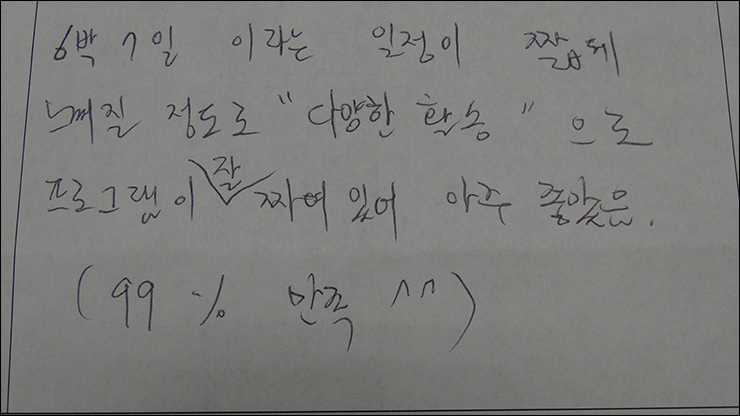 6박 7일 이라는 일정이 짧게
느껴질 정도로 "다양한 활동" 으로
프로그램이 잘 짜여 있어 아주 좋았음.
(99 % 만족 ^^)